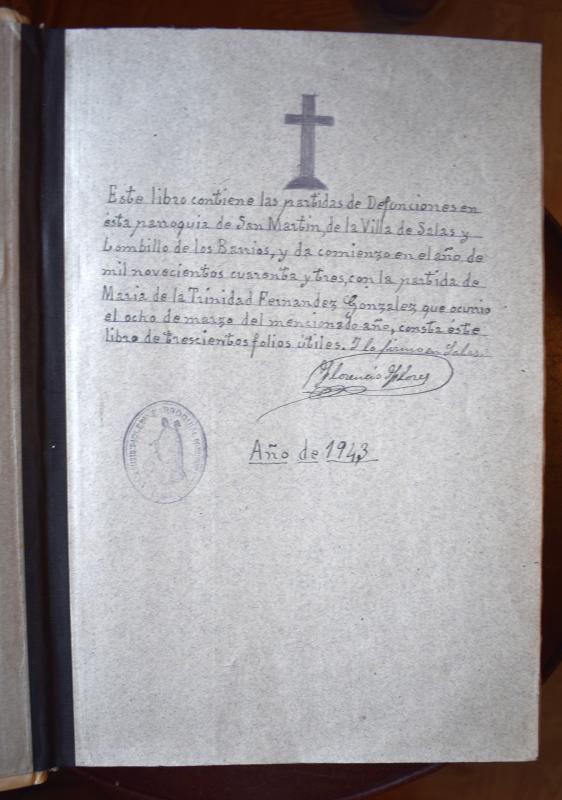 Este libro contiene las partidas de Defunciones en
ésta parroquia de San Martin, de la Villa de Salas y
Lombillo de los Barrios, y da comienzo en el año de
mil novecientos cuarenta y tres, con la partida de
Maria de la Trinidad Fernandez Gonzalez que ocurrio
el ocho de marzo del mencionado año, consta éste
libro de trescientos folios útiles. Y lo firmo en Salas.
Florencio Flores
Año de 1943